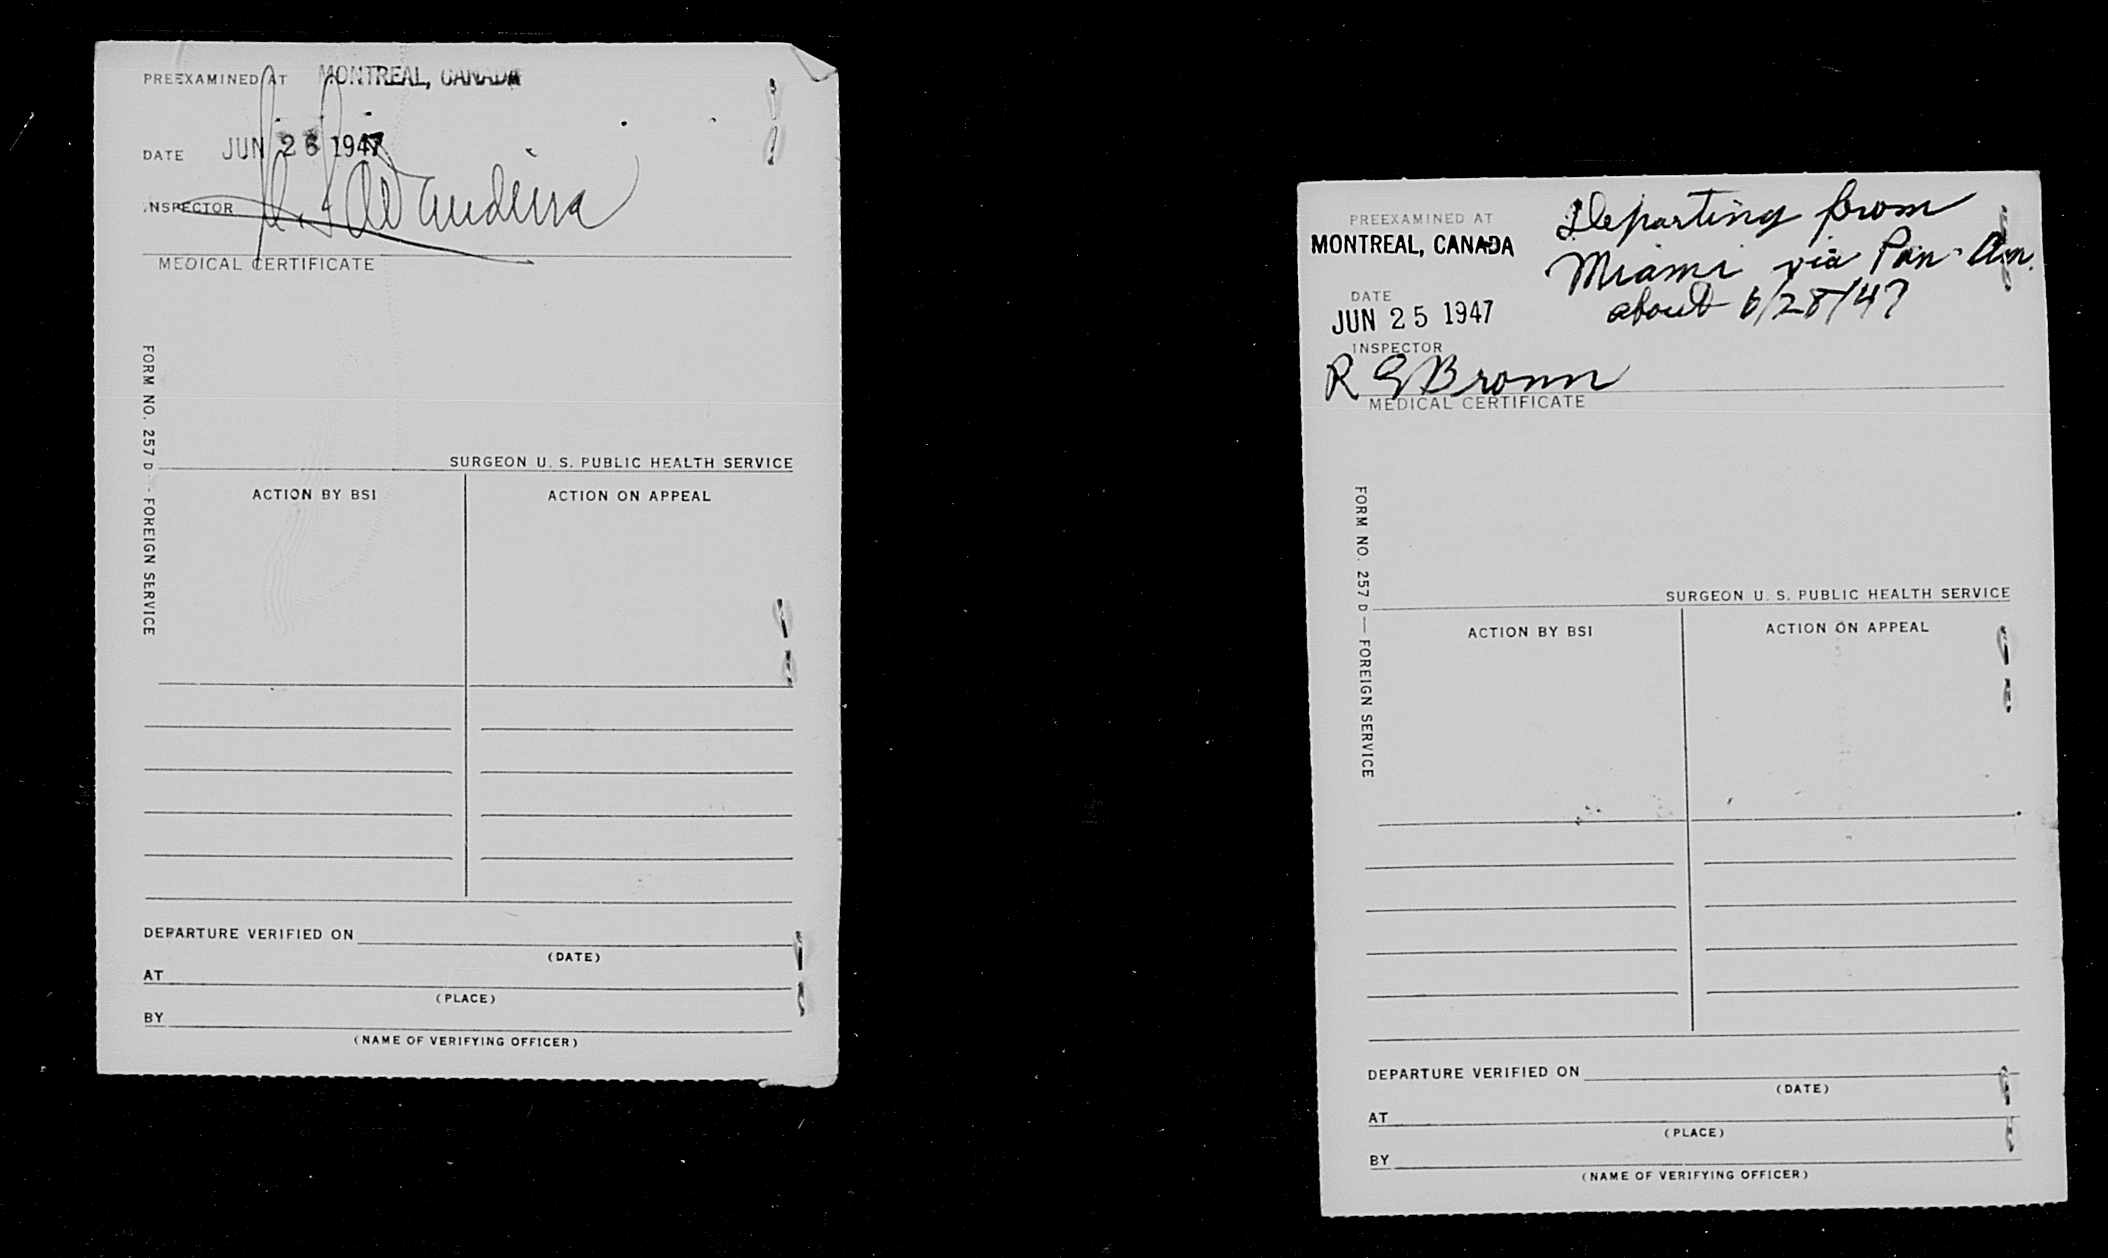 PREEXAMINED AT MONTREAL, CANADA
DATE JUN 26 1947
INSPECTOR
MEDICAL CERTIFICATE
FORM NO. 257 D - FOREIGN SERVICE
SURGEON U. S. PUBLIC HEALTH SERVICE
ACTION BY BSI
ACTION ON APPEAL
DEPARTURE VERIFIED ON
(DATE)
AT
(PLACE)
BY
(NAME OF VERIFYING OFFICER)
PREEXAMINED AT
MONTREAL, CANADA
Departing from
Miami via Pan-Am.
about 6/28/47
DATE
JUN 25 1947
INSPECTOR
R G Brown
MEDICAL CERTIFICATE
FORM NO. 257 D — FOREIGN SERVICE
SURGEON U. S. PUBLIC HEALTH SERVICE
ACTION BY BSI
ACTION ON APPEAL
DEPARTURE VERIFIED ON
(DATE)
AT
(PLACE)
BY
(NAME OF VERIFYING OFFICER)